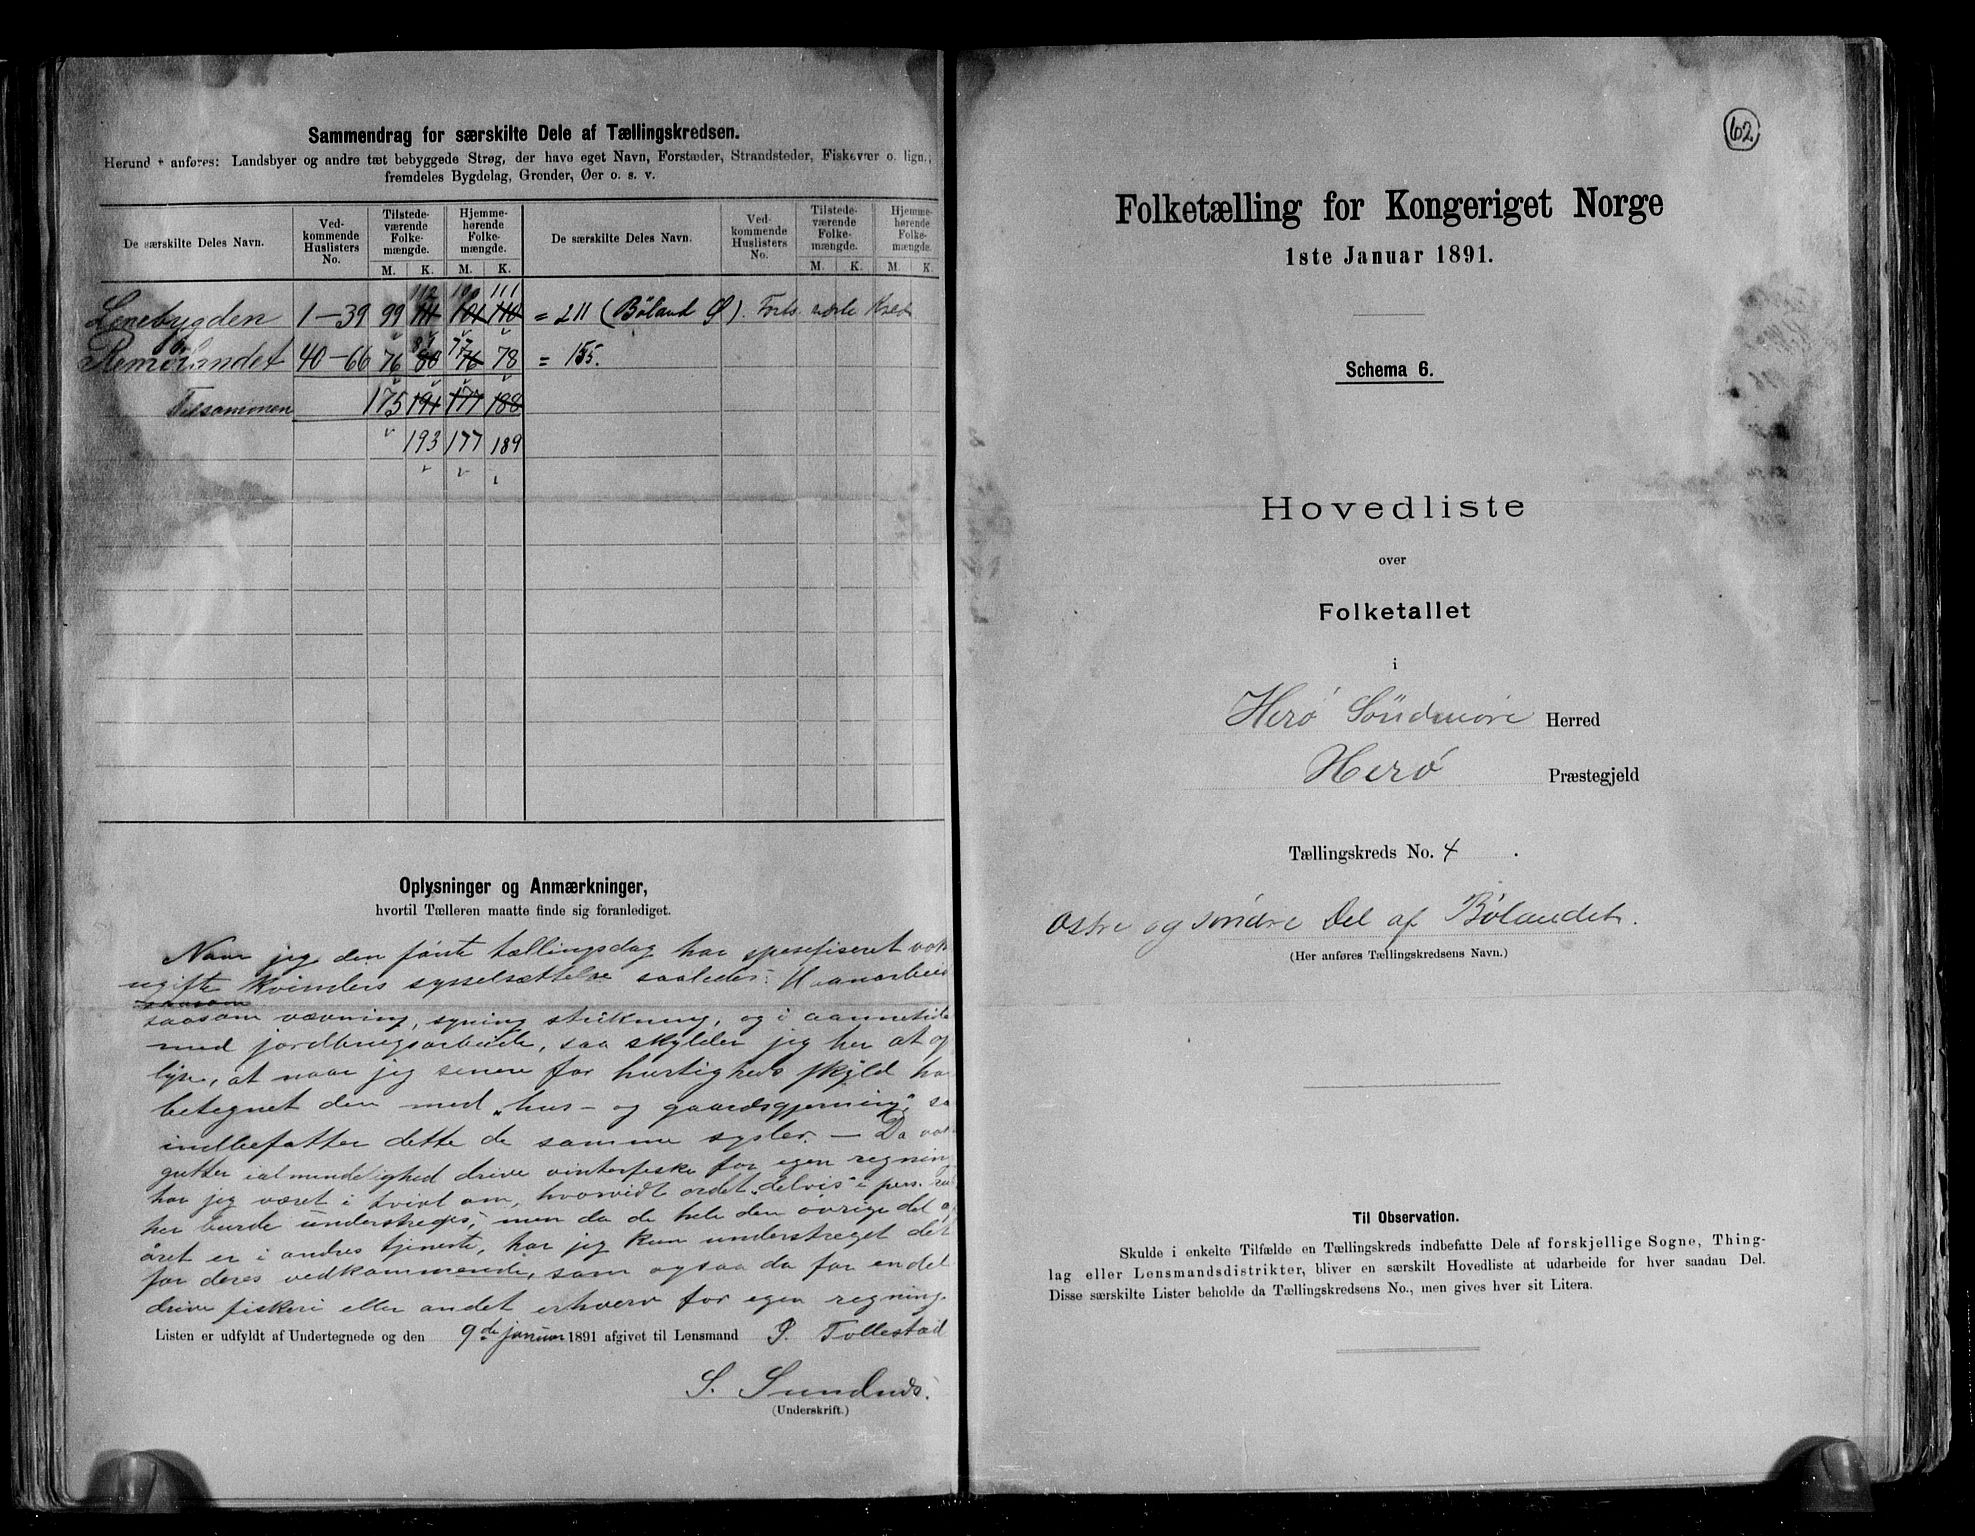 Sammendrag for særskilte Dele af Tællingskredsen.
Herund + anføres: Landsbyer og andre tæt bebyggede Strøg, der have eget Navn, Forstæder, Strandsteder, Fiskevær o. lign.,
fremdeles Bygdelag, Grender, Øer o. s. v.
De særskilte Deles Navn.
Ved-
kommende
Huslisters
No.
Tilstede-
værende
Folke-
mængde.
Hjemme-
hørende
Folke-
mængde.
M. K. M. K.
De særskilte Deles Navn.
Ved-
kommende
Huslisters
No.
Tilstede-
værende
Folke-
mængde.
Hjemme-
hørende
Folke-
mængde.
M. K. M. K.
112 100 111
1-39 99 111 101 110 = 211 (Bøland Ø). Forts. næste Kreds
81 77
40-66 76 80 76 78 = 155.
Tilsammen 175 191 177 188
193 177 189
Oplysninger og Anmærkninger,
hvortil Tælleren maatte finde sig foranlediget.
Naar jeg den første tællingsdag har spesefiseret vok
ugifte kvinders sysselsættelse saaledes: Haanarbeid
saasom
saasom vævning, syning strikning, og i aannetide
med jordbrugsarbeide, saa skylder jeg her at op
lyse, at naar jeg senere for hurtigheds skyld ha
betegnet den med "hus- og gaardsgjerning", sa
indbefatter dette de samme sysler. — Da vok
gutter i almindelighed drive vinterfiske for egen regning
har jeg været i tvivl om, hvorvidt ordet "delvis" i pers.
her burde understreges; men da de hele den øvrige del a
året er i andres tjeneste, har jeg kun understreget det
for deres vedkommende, som ogsaa da for en del
drive fiskeri eller andet erhverv for egen regning.
Listen er udfyldt af Undertegnede og den 9de januar 1891 afgivet til Lensmand P. Tollestad
S. Sundnes.
(Underskrift.)
62
Folketælling for Kongeriget Norge
1ste Januar 1891.
Schema 6.
Hovedliste
over
Folketallet
i
Herø Söndmöre Herred
Herø Præstegjeld
Tællingskreds No. 4.
Østre og søndre Del af Bølandet.
(Her anføres Tællingskredsens Navn.)
Til Observation.
Skulde i enkelte Tilfælde en Tællingskreds indbefatte Dele af forskjellige Sogne, Thing-
lag eller Lensmandsdistrikter, bliver en særskilt Hovedliste at udarbeide for hver saadan Del.
Disse særskilte Lister beholde da Tællingskredsens No., men gives hver sit Litera.